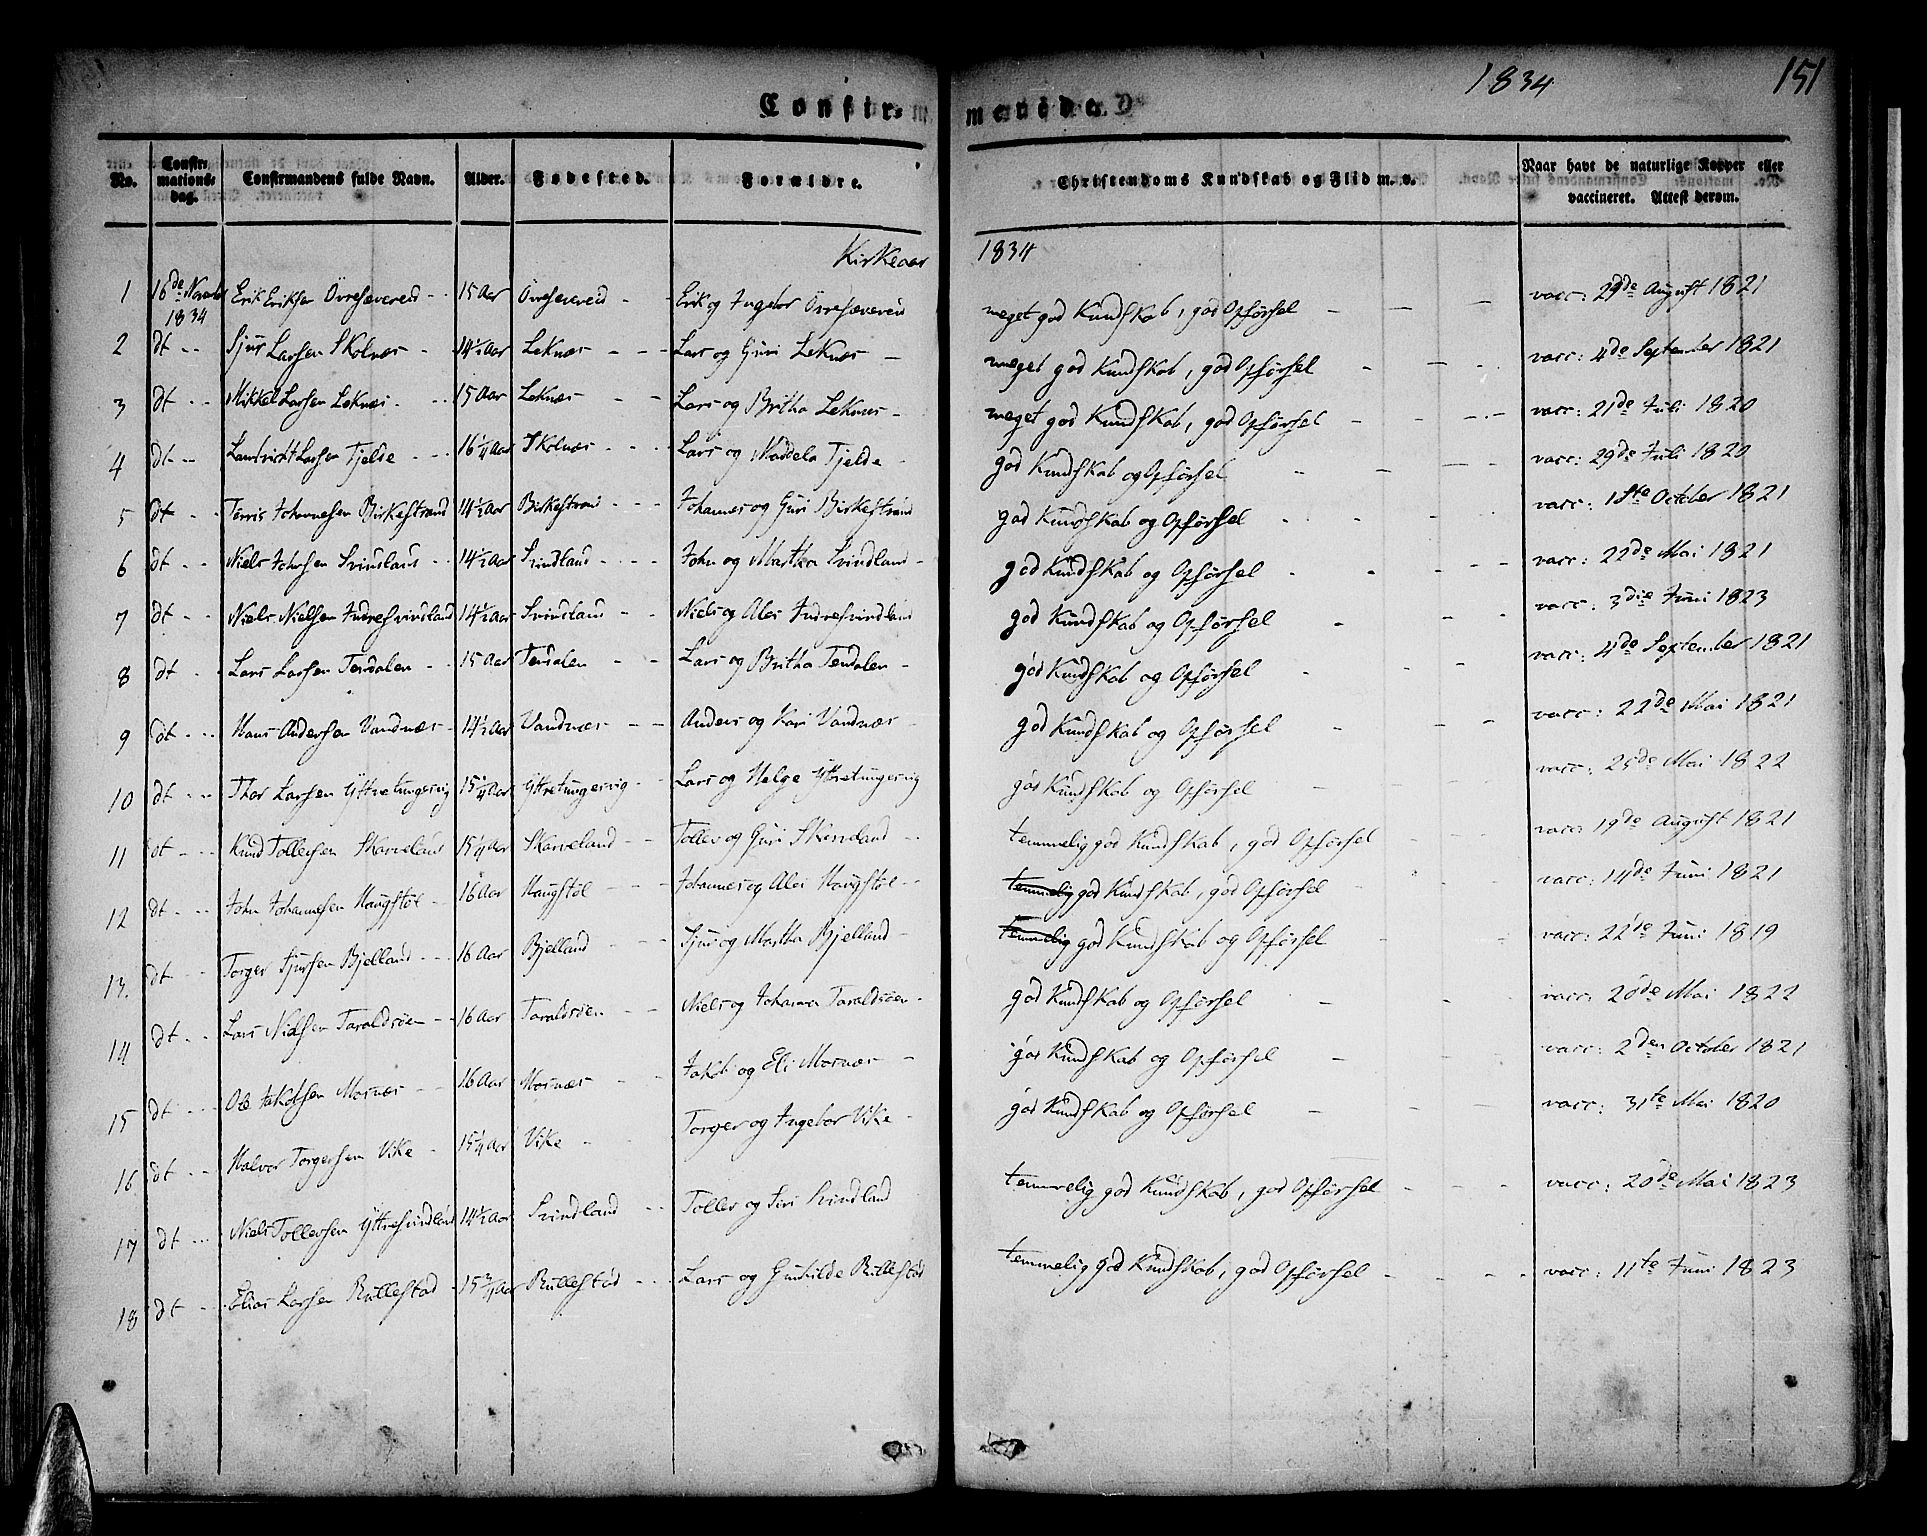 1834 151
Confirmanede.
No. Confirmations-dag. Confirmandens fulde Navn. Alder. Fødested. Forældre. Christendoms Kundskab og Flid m. v. Naar havt de naturlige Kopper eller vaccineret. Attest derom.
Kirkeaar 1834
1 16de Novembr 1834 Erik Eriksen Övresævereid 15 Aar Övresævereid Erik og Ingebor Övresævereid meget god Kundskab, god Opförsel vacc: 29de August 1821
2 dt Sjur Larsen Skolnæs 14½ Aar Leknæs Lars og Guri Leknæs meget god Kundskab, god Opförsel vacc: 4de September 1821
3 dt Mikkel Larsen Leknæs 15 Aar Leknæs Lars og Britha Leknæs meget god Kundskab, god Opförsel vacc: 21de Juli 1820
4 dt Larsen Tjelde 16¼ Aar Skolnæs Lars og Maddela Tjelde god Kundskab og Opförsel vacc: 29de Juli 1820
5 dt Terris Johannesen Birkestrand 14½ Aar Birkestrand Johannes og Guri Birkestrand god Kundskab og Opförsel vacc: 1ste October 1821
6 dt Niels Johnsen Svindland 14½ Aar Svindland John og Martha Svindland god Kundskab og Opförsel vacc: 22de Mai 1821
7 dt Niels Nielsen Indresvindland 14½ Aar Svindland Niels og Alei Indresvindland god Kundskab og Opförsel vacc: 3die Juni 1823
8 dt Lars Larsen Tendalen 15 Aar Tendalen Lars og Britha Tendalen god Kundskab og Opförsel vacc: 4de September 1821
9 dt Hans Andersen Vandnæs 14½ Aar Vandnæs Anders og Kari Vandnæs god Kundskab og Opförsel vacc: 22de Mai 1821
10 dt Thor Larsen Yttretungesvig 15¼ Aar Yttretungesvig Lars og Helge Yttretungesvig god Kundskab og Opförsel vacc: 25de Mai 1822
11 dt Knud Tollevsen Skarveland 15¼ Aar Skarveland Tollev og Guri Skarveland temmelig god Kundskab, god Opförsel vacc: 19de August 1821
12 dt John Johannesen Haugstöl 16 Aar Haugstöl Johannes og Alei Haugstöl temmelig god Kundskab, god Opförsel vacc: 14de Juni 1821
13. dt Torger Sjursen Bjelland 16 Aar Bjelland Sjur og Martha Bjelland temmelig god Kundskab og Opförsel vacc: 22de Juni 1819
14 dt Lars Nielsen Taraldsöen 16 Aar Taraldsöen Niels og Johanna Taraldsöen god Kundskab og Opförsel vacc: 20de Mai 1822
15 dt Ole Jakobsen Mosnæs 16 Aar Mosnæs Jakob og Eli Mosnæs god Kundskab og Opförsel vacc: 2den October 1821
16 dt Halvor Torgersen Vike 15¼ Aar Vike Torger og Ingebor Vike god Kundskab og Opförsel vacc: 31te Mai 1820
17 dt Niels Tollevsen Yttresvindland 14½ Aar Svindland Tollev og Siri Svindland temmelig god Kundskab, god Opförsel vacc: 20de Mai 1823
18 dt Elias Larsen Rullestad 15¾ Aar Rullestad Lars og Gunhilde Rullestad temmelig god Kundskab, god Opförsel vacc: 11te Juni 1823